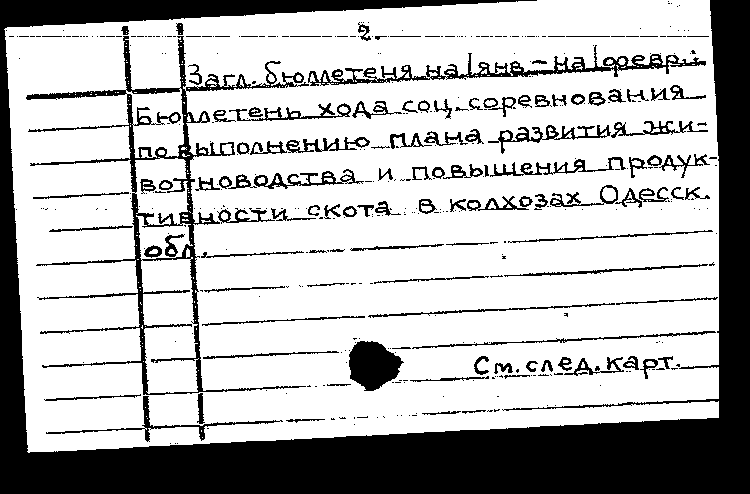 2.
Загл. бюллетеня на 1 янв. – на 1 февр.:
Бюллетень хода соц. соревнования
по выполнению плана развития жи-
вотноводства и повышения продук-
тивности скота в колхозах Одесск.
обл.
См. след. карт.